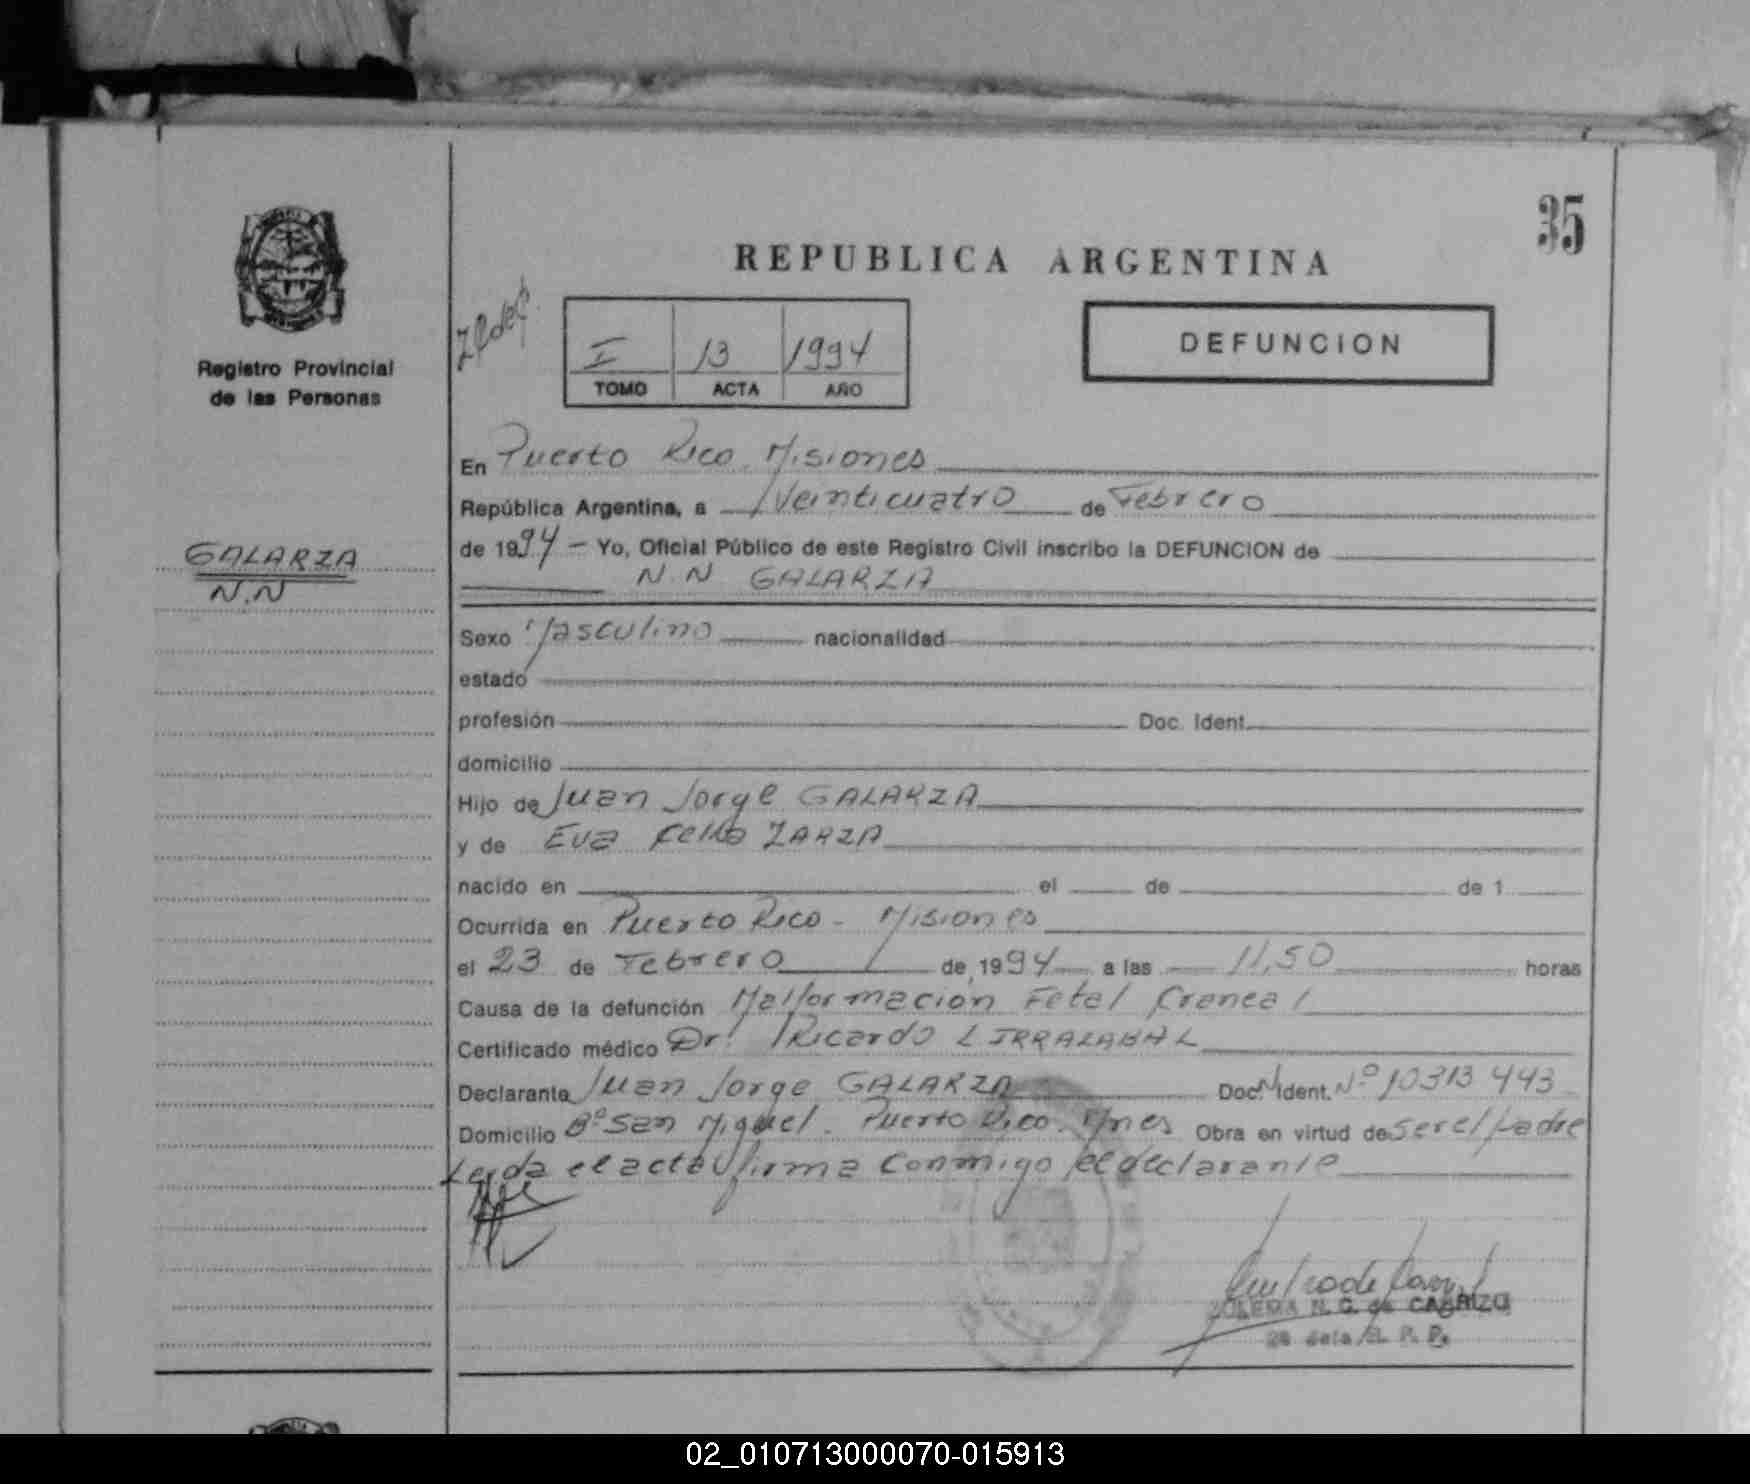 35
REPUBLICA ARGENTINA
I 13 1994
TOMO ACTA AÑO
DEFUNCION
Registro Provincial
de las Personas
GALARZA
N.N
En Puerto Rico Misiones
República Argentina, a Veinticuatro de Febrero
de 1994 - Yo, Oficial Público de este Registro Civil inscribo la DEFUNCION de
N.N GALARZA
Sexo Masculino nacionalidad
estado
profesión Doc. Ident.
domicilio
Hijo de Juan Jorge GALARZA
y de Eva Celia ZARZA
nacido en el de de 1
Ocurrida en Puerto Rico - Misiones
el 23 de Febrero de 1994 a las 11,50 horas
Causa de la defunción Malformación Fetal Craneal
Certificado médico Dr. Ricardo
Declarante Juan Jorge GALARZA Doc. N. Ident. Nº 10313443
Domicilio Bº San Miguel. Puerto Rico. Mnes Obra en virtud de ser el padre
Leida el acta firma conmigo el declarante
N. G. de CABRIZO
02_010713000070-015913